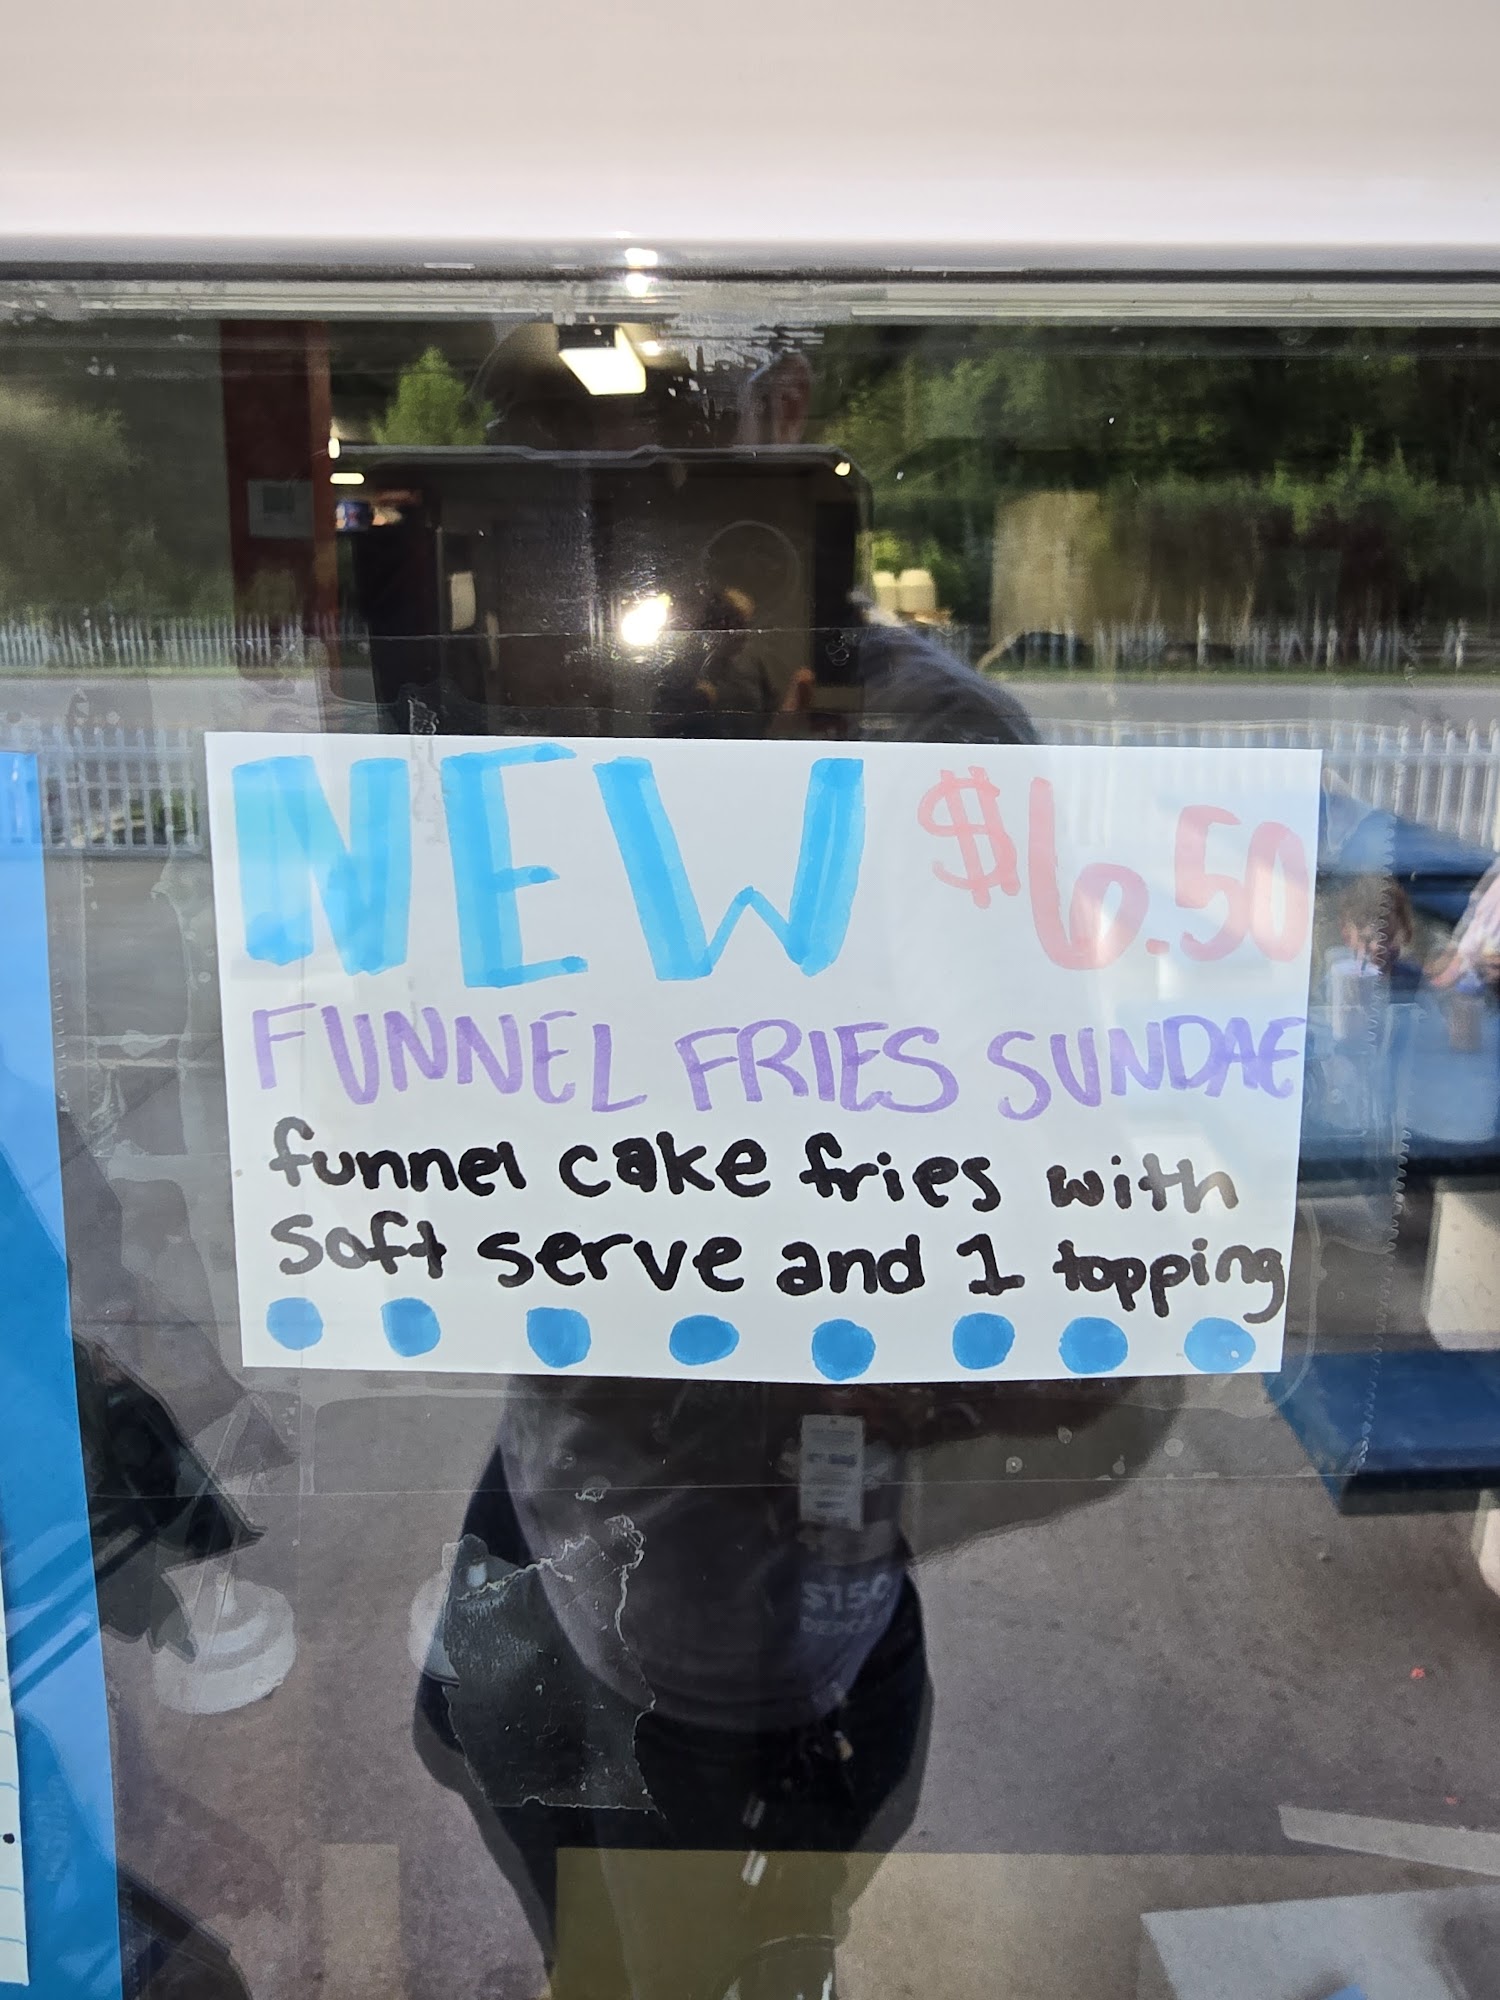 NEW $6.50
FUNNEL FRIES SUNDAE
funnel cake fries with
soft serve and 1 topping